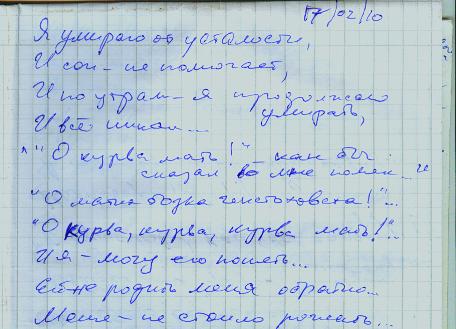 17/02/10
Я умираю от усталости,
И сон - не помогает,
И по утрам - я продолжаю
умирать,
И всё никак...
"О курва мать!" - как бы
сказал во мне поляк - и
"О матка бозка ченстоховска!"...
"О курва, курва, курва мать!"...
И я - могу его понять...
Ей не родить меня обратно...
Меня - не стоило рожать...